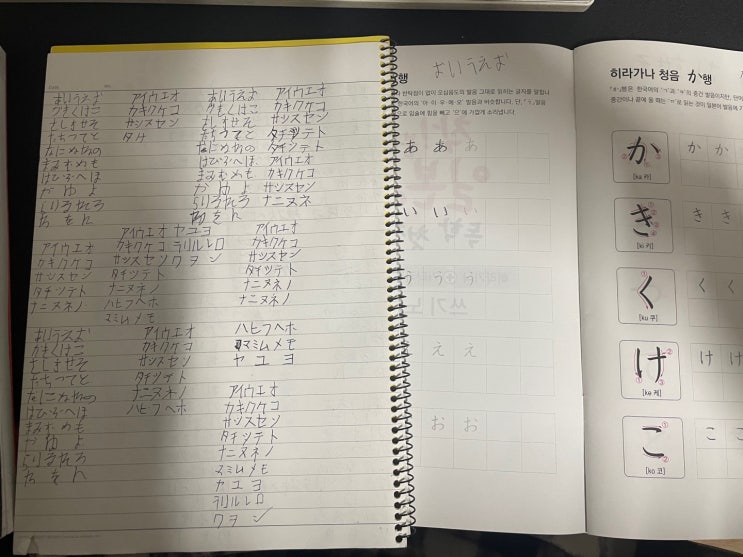 あいうえお アイウエオ あいうえお アイウエオ
かきくけこ カキクケコ かきくけこ カキクケコ
さしすせそ サシスセン さしすせそ サシスセン
たちつてと タナ たちつてと タチツテト
なにぬねの なにぬねの タイツテト
まみむめも はひふへほ アイウエオ
はひふへほ まみむめも カキクケコ
がゆよ がゆよ サシスセン
らりるれろ らりるれろ ナニヌネ
わをん わをん
アイウエオ ヤユヨ アイウエオ
アイウエオ カキクケコ ラリルレロ カキクケコ
カキクケコ サシスセン ワヲン サシスセン
サシスセン タチツテト タチツテト
タチツテト ナニヌネノ ナニヌネノ
ナニヌネノ ハヒフヘホ ナニヌネノ
マミムメモ
あいうえお アイウエオ ハヒフヘホ
かきくけこ カキクケコ マミムメモ
さしすせそ サシスセン ヤユヨ
たちつてと タチツテト
なにぬねの ナニヌネノ アイウエオ
はひふへほ ハヒフヘホ カキケコ
まみむめも サシスセン
がゆよ タチツテト
らりるれろ ナニヌネノ
わをん マミムメモ
ヤユヨ
ラリルレロ
ワヲン
あいうえお
행
あ あ あ
い い い
う う う
え え
お お
히라가나 청음 か행
か か か
[ka 카]
き き き
[ki 키]
く く く
[ku 쿠]
け け け
[ke 케]
こ こ こ
[ko 코]